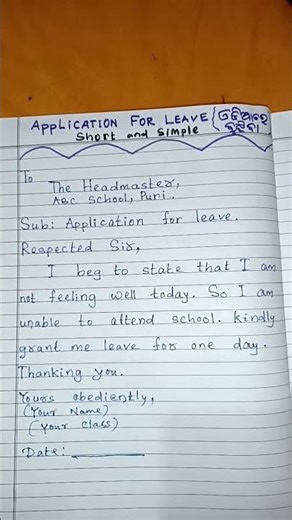 APPLICATION FOR LEAVE (ଓଡ଼ିଆରେ
Short and Simple ବୁଝିବା)
To
The Headmaster,
ABC School, Puri.
Sub: Application for leave.
Respected Sir,
I beg to state that I am
not feeling well today. So I am
unable to attend school. Kindly
grant me leave for one day.
Thanking you.
Yours obediently,
(Your Name)
(Your Class)
Date: